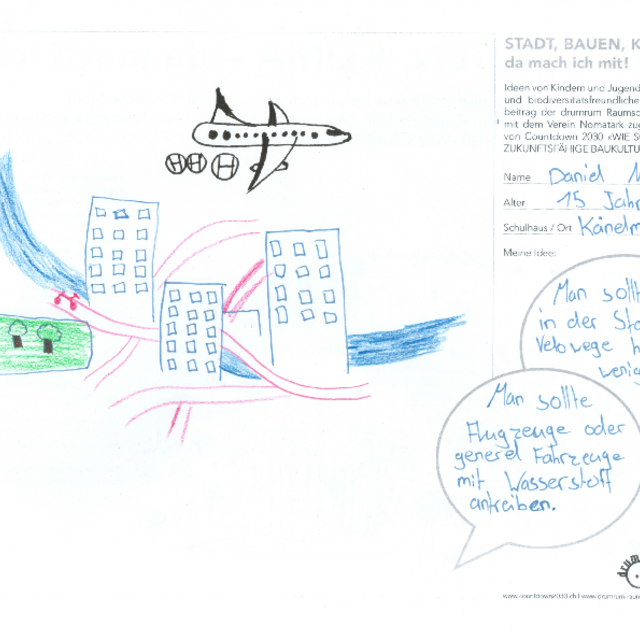 STADT, BAUEN, K
da mach ich mit!
Ideen von Kindern und Jugend
und biodiversitätsfreundliche
beitrag der drumrum Raumsc
mit dem Verein Nomatark zu
von Countdown 2030 «WIE S
ZUKUNFTSFÄHIGE BAUKULTU
Name Daniel M
Alter 15 Jahr
Schulhaus / Ort Känelm
Meine Idee:
Man sollt
in der Sta
Velowege h
wenig
Man sollte
Flugzeuge oder
generel Fahrzeuge
mit Wasserstoff
antreiben.
H H H
drum
www.countdown2030.ch | www.drumrum-raum